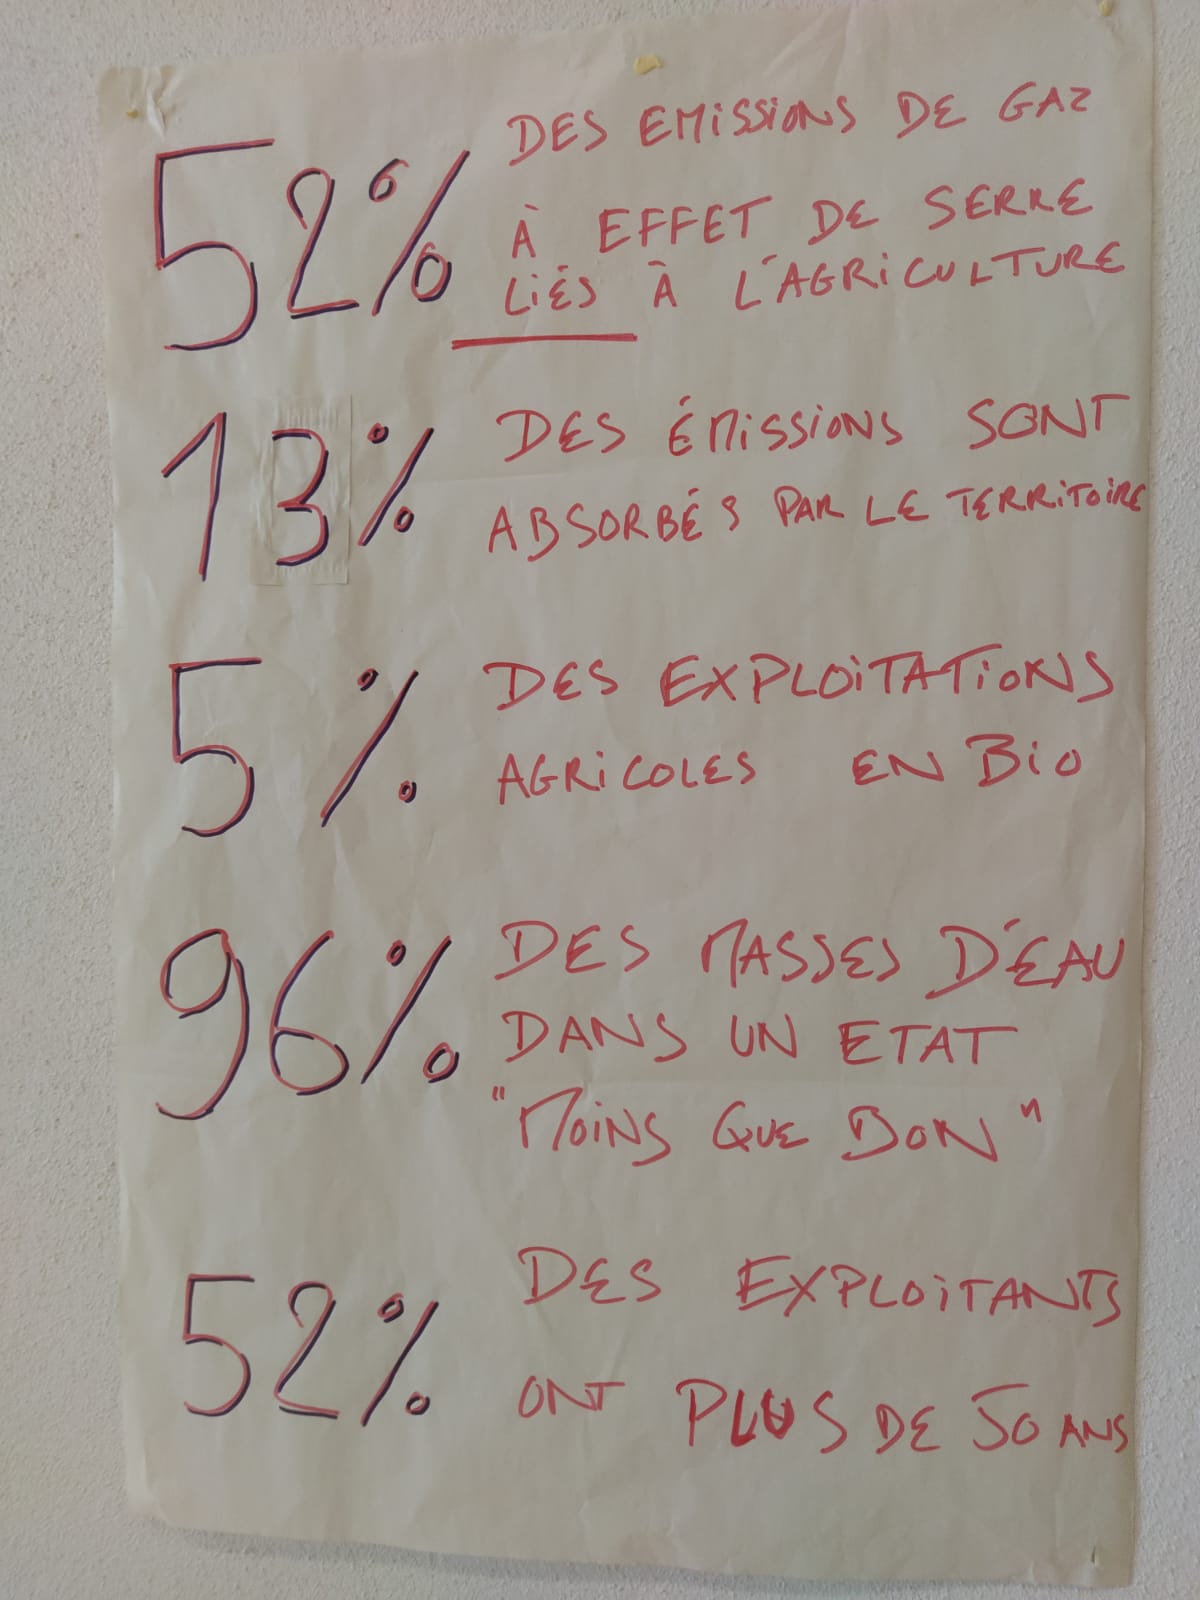 52% DES EMISSIONS DE GAZ
À EFFET DE SERRE
LIÉS À L'AGRICULTURE
13% DES ÉMISSIONS SONT
ABSORBÉS PAR LE TERRITOIRE
5% DES EXPLOITATIONS
AGRICOLES EN BIO
96% DES MASSES D'ÉAU
DANS UN ETAT
"MOINS QUE BON"
52% DES EXPLOITANTS
ONT PLUS DE 50 ANS